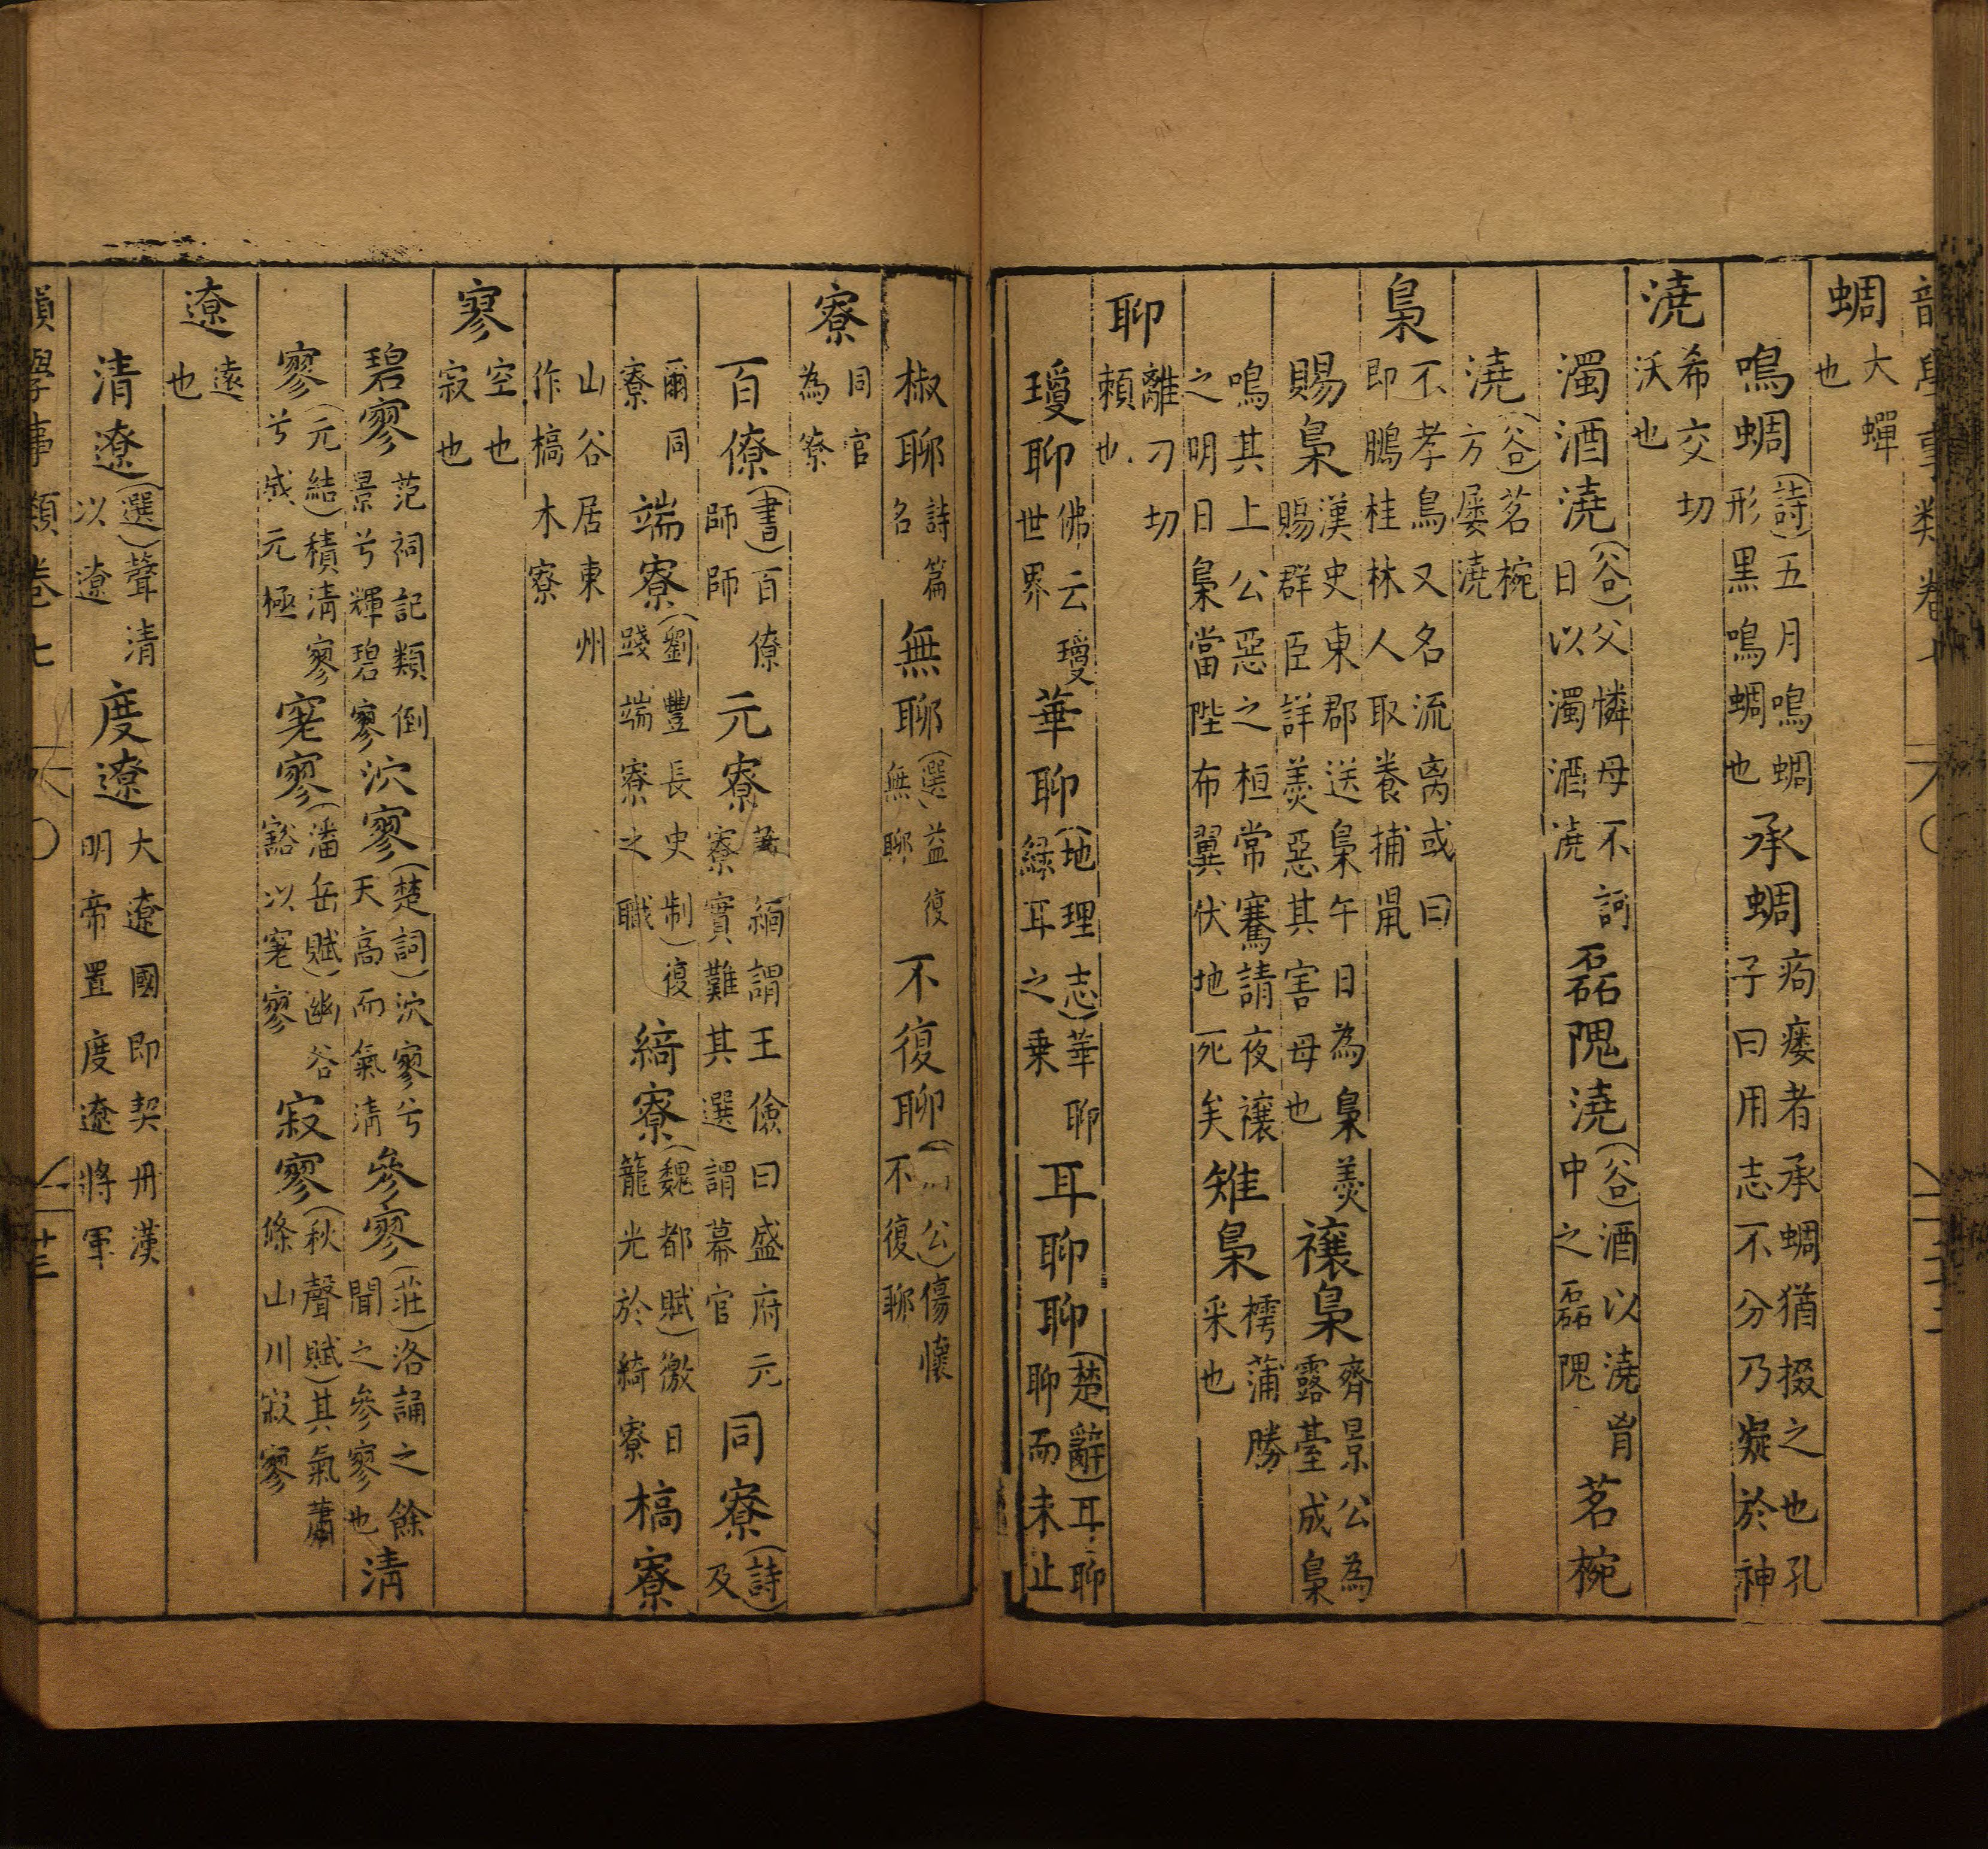 韻學事類卷七
蜩大蟬也
鳴蜩(詩)五月鳴蜩形黑鳴蜩也承蜩痀瘻者承蜩猶掇之也孔子曰用志不分乃凝於神
澆希交切沃也
濁酒澆(谷)父憐母不訶日以濁酒澆磊隗澆(谷)酒以澆胷中之磊隗茗椀
澆(谷)茗椀方屡澆
梟不孝鳥又名流离或曰即鵩桂林人取養捕鼠
賜梟漢史東郡送梟午日為梟羹賜群臣詳羹惡其害母也禳梟齊景公為露臺成梟
鳴其上公惡之桓常騫請夜禳之明日梟當陛布翼伏地死矣雉梟樗蒲勝采也
聊離刁切頼也
瓊聊佛云瓊世界華聊(地理志)華聊緑耳之乗耳聊聊(楚辭)耳聊聊而未止
椒聊詩篇名無聊(選)益復無聊不復聊公)傷懷不復聊
寮同官為寮
百僚(書)百僚師師元寮蕭緬謂王儉曰盛府元寮實難其選謂幕官同寮(詩)及
爾同寮端寮(劉豐長史制)復踐端寮之職綺寮(魏都賦)皦日籠光於綺寮槁寮
山谷居東州作槁木寮
寥空也寂也
碧寥范祠記類倒景兮輝碧寥泬寥(楚詞)泬寥兮天高而氣清參寥(莊)洛誦之餘聞之參寥也清
寥(元結)積清寥兮戚元極窐寥(潘岳賦)幽谷豁以窐寥寂寥(秋聲賦)其氣蕭條山川寂寥
遼遠也
清遼(選)聲清以遼度遼大遼國即契丹漢明帝置度遼將軍
韻學事類卷七
十三